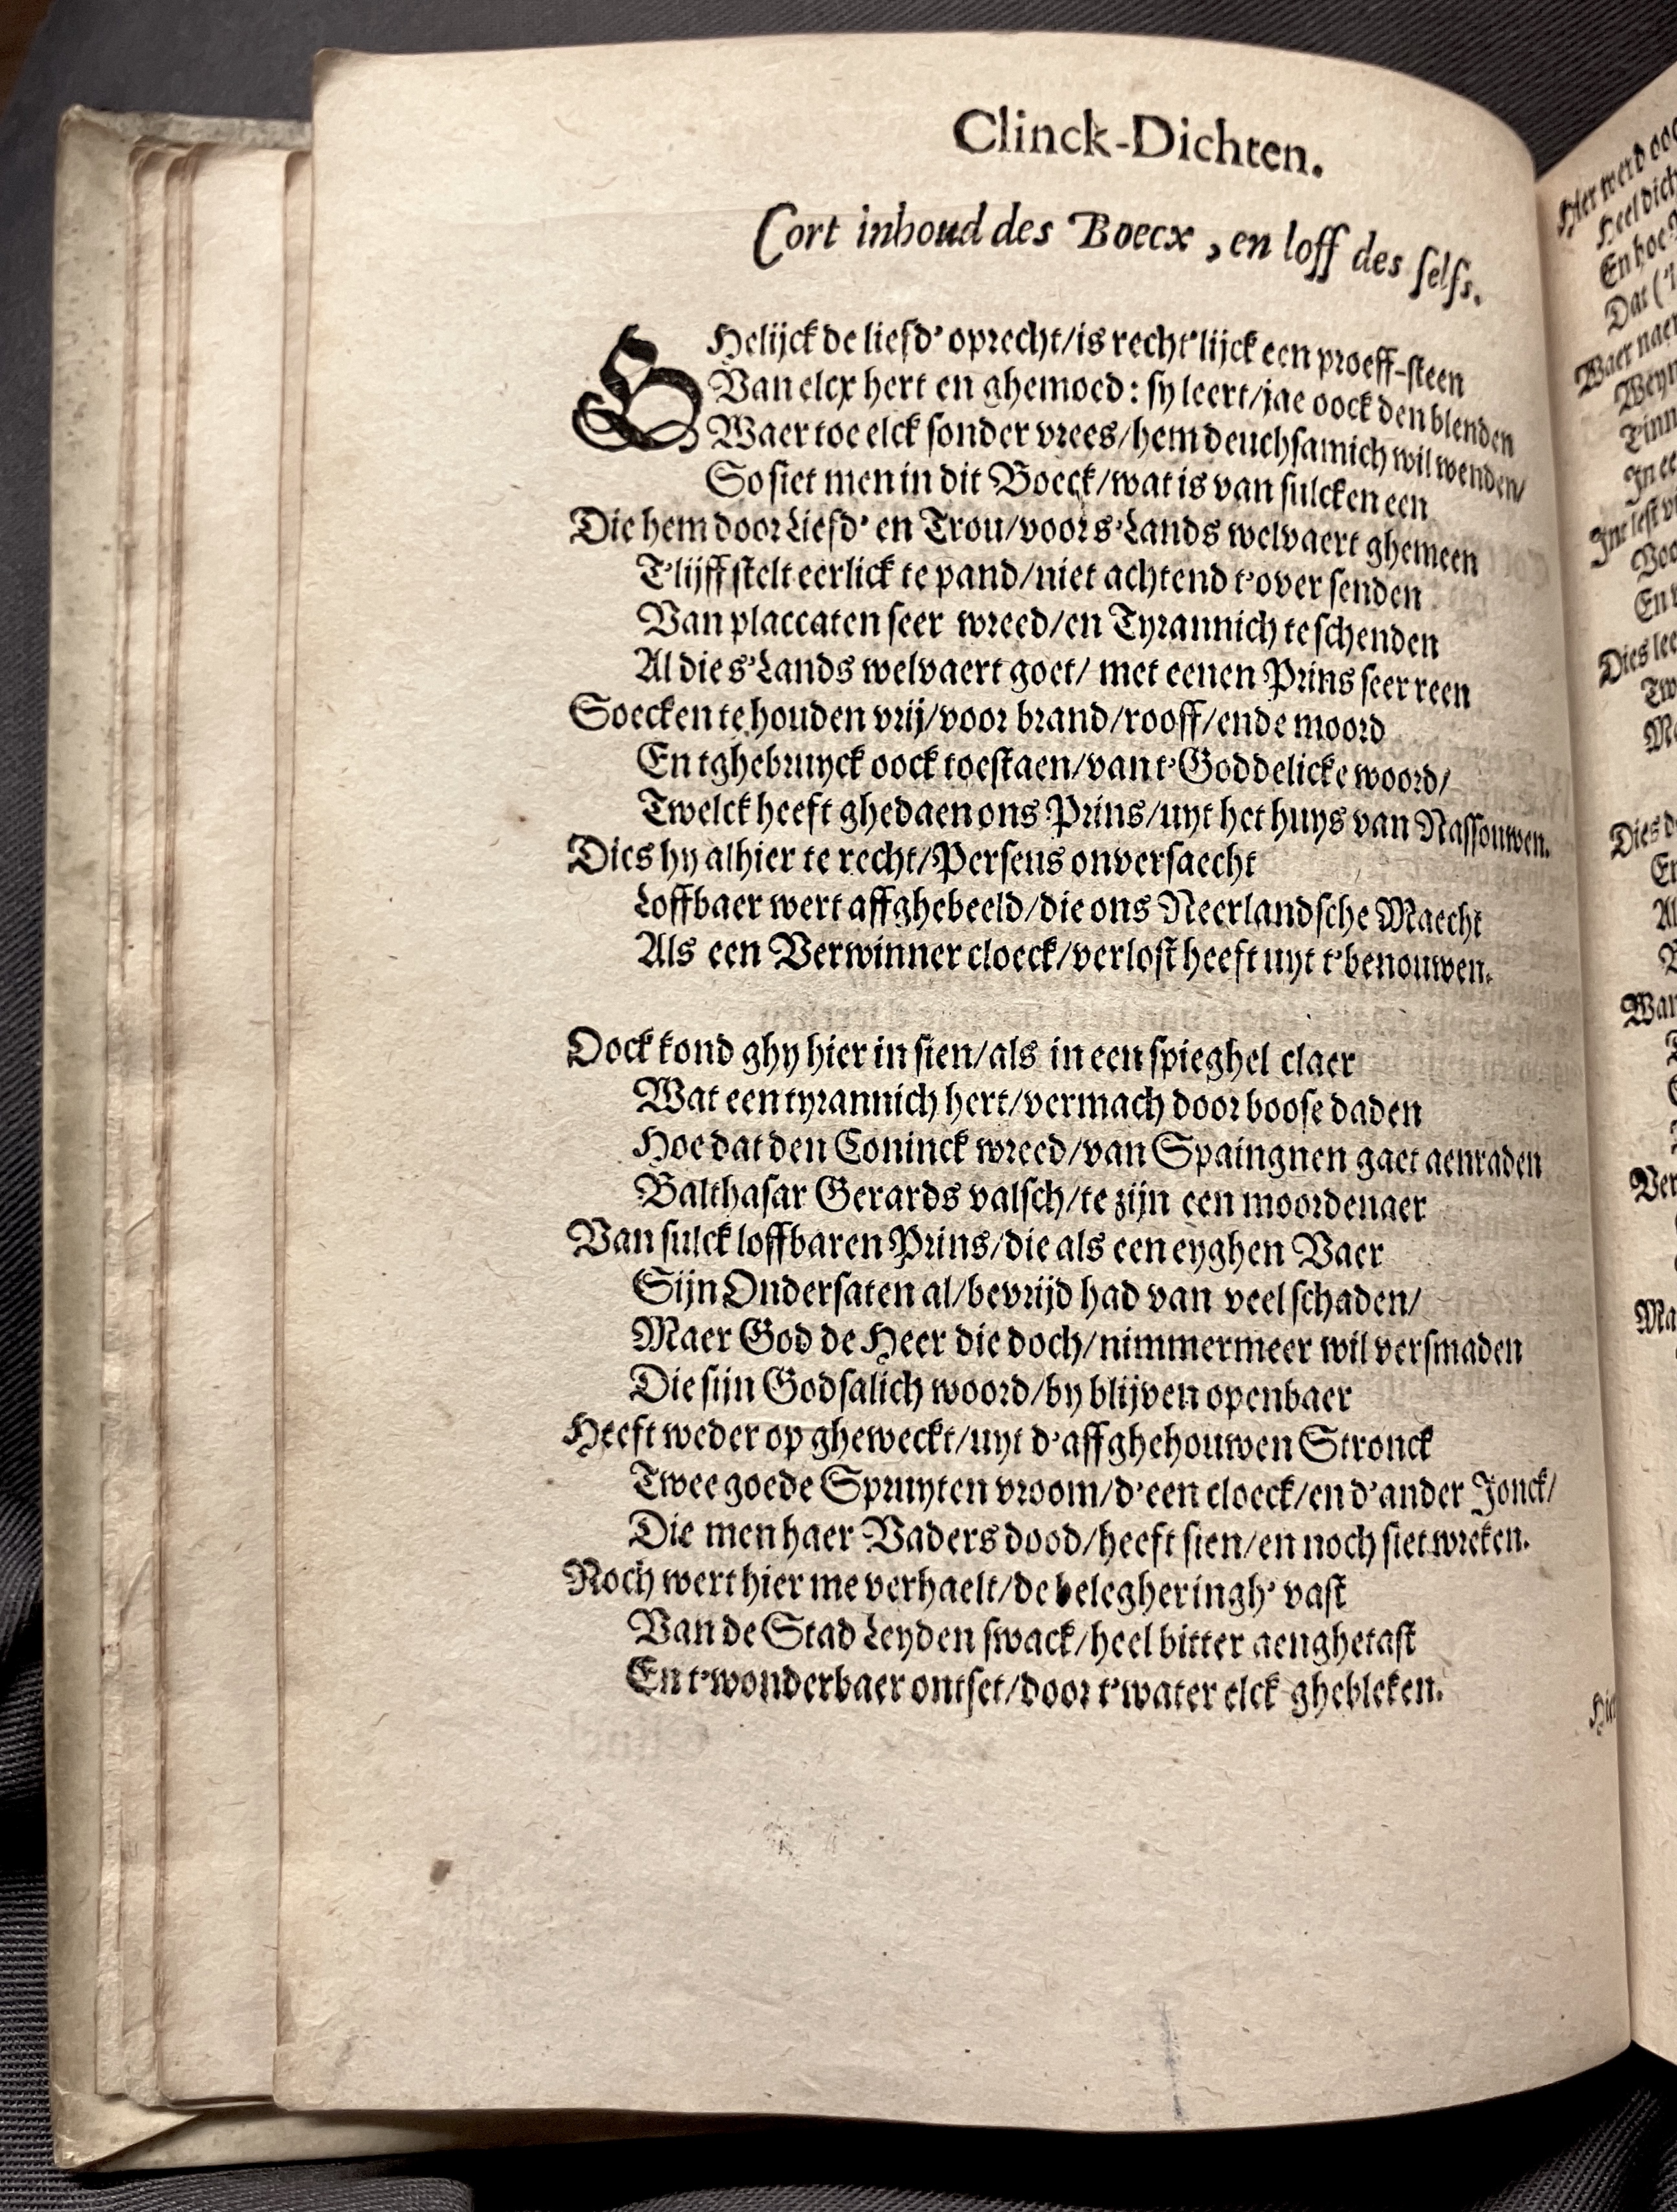 Clinck-Dichten.
Cort inhoud des Boecx, en loff des selfs.
GHelijck de liefd' oprecht/is recht'lijck een proeff-steen
Van elcx hert en ghemoed: sy leert/jae oock den blenden
Waer toe elck sonder vrees/hem deuchsamich wil wenden/
So siet men in dit Boeck/wat is van sulcken een
Die hem door Liefd' en Trou/voor s'Lands welvaert ghemeen
T'lijff stelt eerlick te pand/niet achtend t'over senden
Van placcaten seer wreed/en Tyrannich te schenden
Al die s'Lands welvaert goet/ met eenen Prins seer reen
Soecken te houden vrij/voor brand/rooff/ende moord
En tghebruyck oock toestaen/van t'Goddelicke woord/
Twelck heeft ghedaen ons Prins/uyt het huys van Nassouwen.
Dies hy alhier te recht/Perseus onversaecht
Loffbaer wert affghebeeld/die ons Neerlandsche Maecht
Als een Verwinner cloeck/verlost heeft uyt t'benouwen.
Oock kond ghy hier in sien/als in een spieghel claer
Wat een tyrannich hert/vermach door boose daden
Hoe dat den Coninck wreed/van Spaingnen gaet aenraden
Balthasar Gerards valsch/te zijn een moordenaer
Van sulck loffbaren Prins/die als een eyghen Vaer
Sijn Ondersaten al/bevrijd had van veel schaden/
Maer God de Heer die doch/nimmermeer wil versmaden
Die sijn Godsalich woord/by blijven openbaer
Heeft weder op gheweckt/uyt d'affghehouwen Stronck
Twee goede Spruyten vroom/d'een cloeck/en d'ander Jonck/
Die men haer Vaders dood/heeft sien/en noch siet wreken.
Noch wert hier me verhaelt/de belegheringh' vast
Van de Stad Leyden swack/heel bitter aenghetast
En t'wonderbaer ontset/door t'water elck ghebleken.